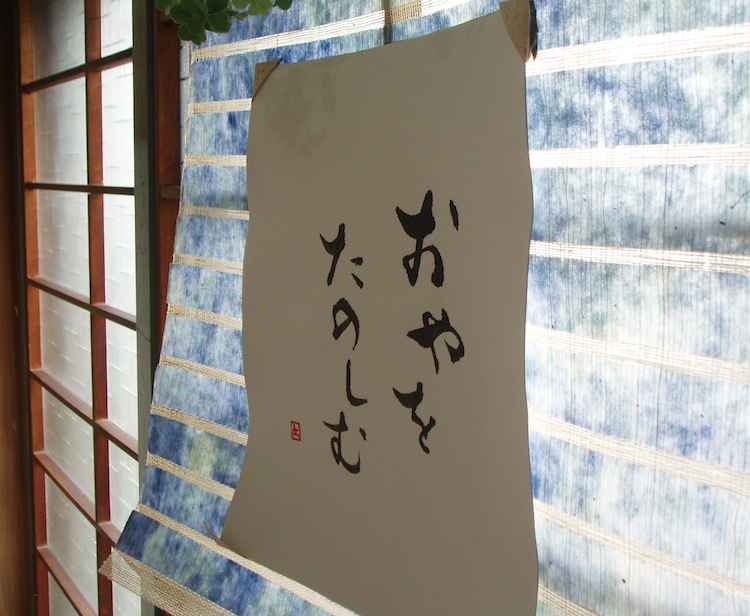 おやを
たのしむ